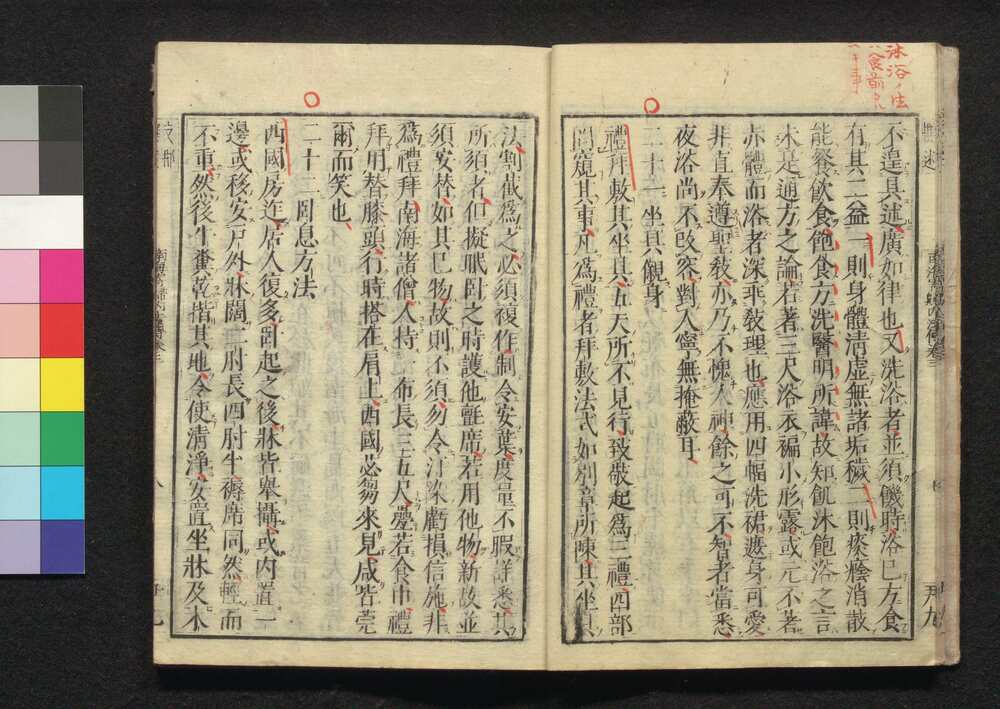 沐浴ノ法
不遑具述、廣如律也、又洗浴者並須饑時浴已方食
有其二益、一則身體清虛無諸垢穢、二則痰癊消散
能餐飲食、飽食方洗醫明所諱、故知飢沐飽浴之言
未是通方之論、若著三尺浴衣褊小形露或元不著
赤體而浴者深乖教理也、應用四幅洗裙遮身可愛
非直奉遵聖教、亦乃不愧人神、餘之可不智者當悉
夜浴尚不改容、對人寧無掩蔽耳、
二十一 坐具儭身
禮拜敷其坐具、五天所不見行、致敬起為三禮、四部
罔窺其事、凡為禮者拜敷法式如別章所陳、其坐具
法割截為之、必須複作、制令安葉、度量不暇詳悉、其
所須者、但擬眠臥之時護他氈席、若用他物、新故並
須安替、如其己物、故則不須、勿令汙染虧損信施、非
為禮拜、南海諸僧人持一布長三五尺、疊若食巾、禮
拜用替膝頭、行時搭在肩上、西國苾芻來見、咸皆莞
爾而笑也、
二十二 臥息方法
西國房迮居人復多、臥起之後牀皆舉攝、或內置一
邊、或移安戶外、牀闊二肘長四肘半、褥席同然、輕而
不重、然後牛糞乾揩其地、令使清淨、安置坐牀及木